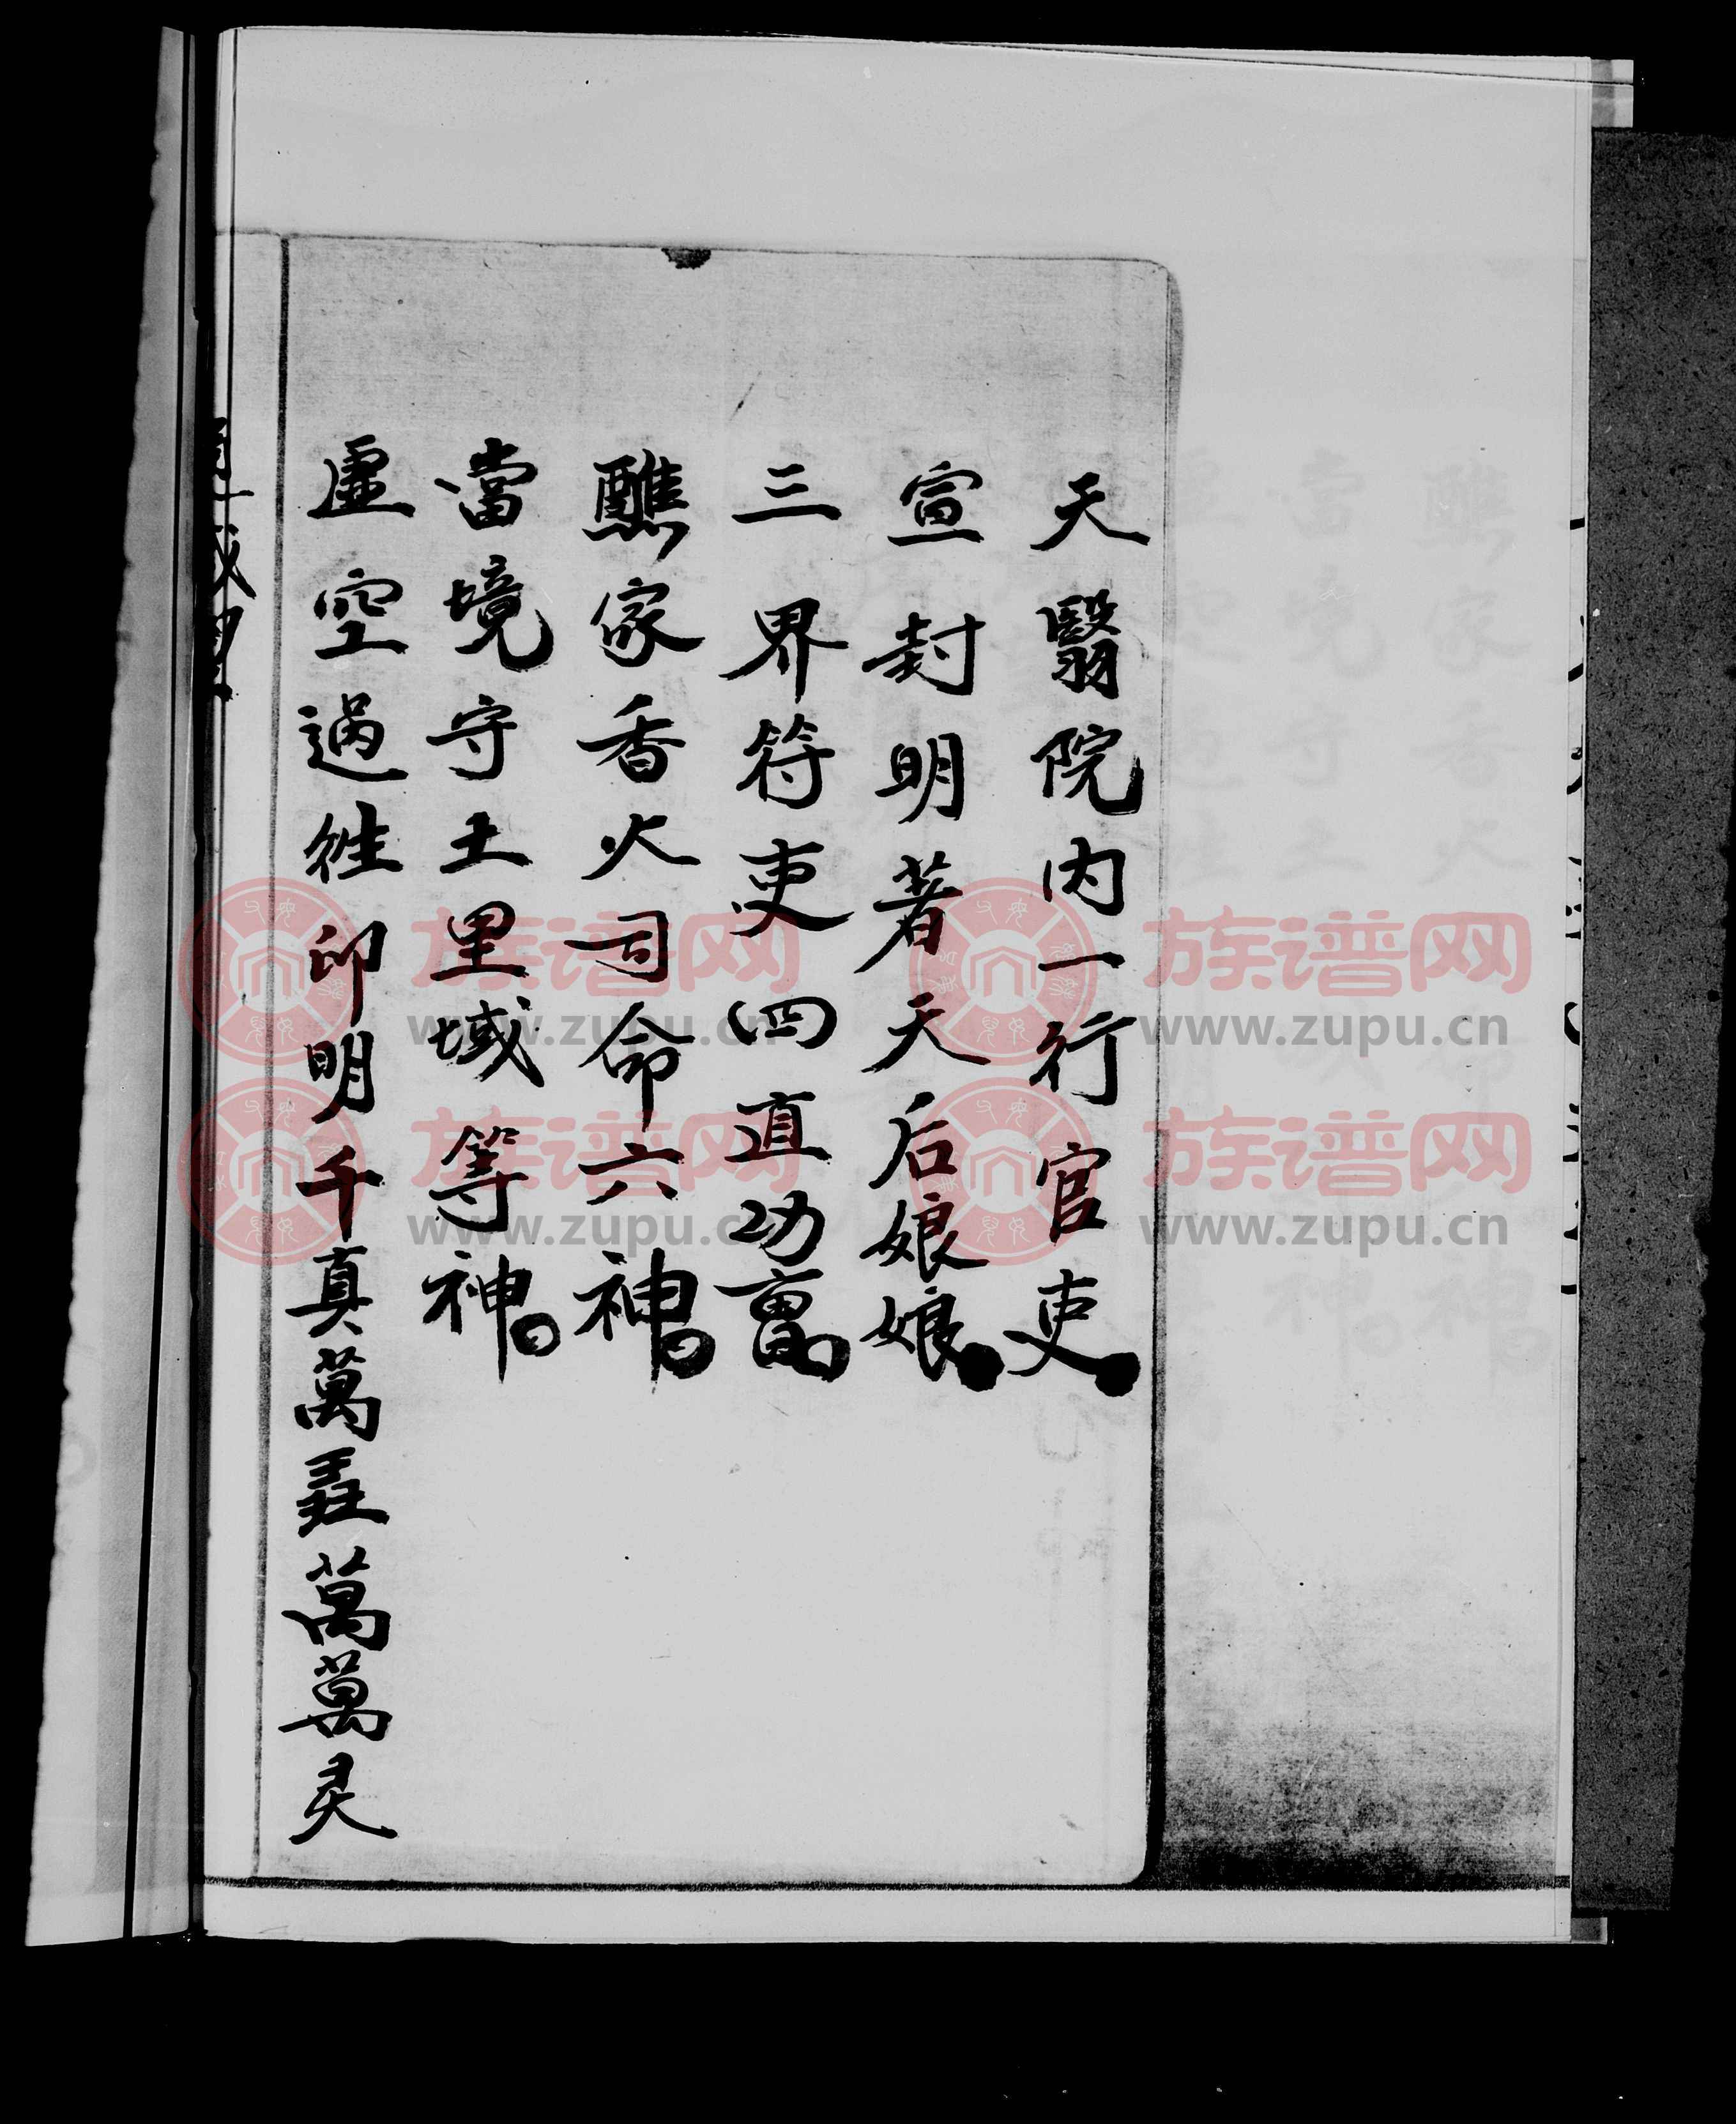 天翳院内一行官吏
宣封明著天后娘娘
三界符吏四直功曹
醮家香火司命六神
當境守土里域等神
虛空過往卬明千真萬聖萬萬灵
族谱网
www.zupu.cn
族谱网
www.zupu.cn
族谱网
www.zupu.cn
族谱网
www.zupu.cn